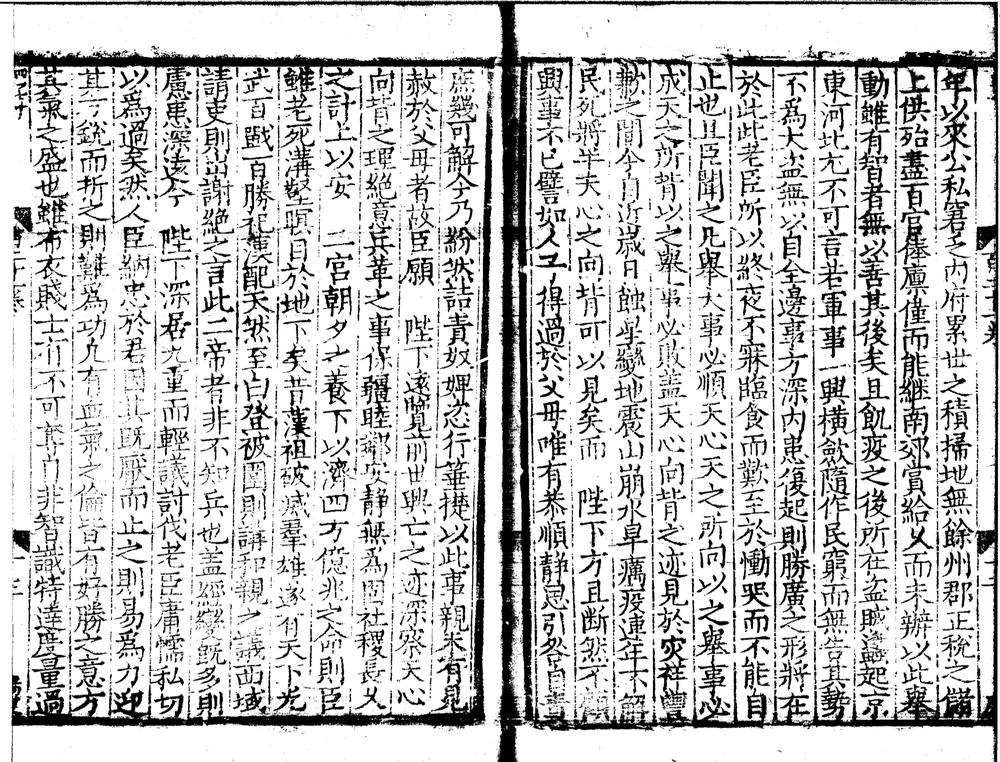 年以來公私窘乏内府累世之積掃地無餘州郡正稅之儲
上供殆盡百官俸廪僅而能繼南郊賞給乂而未辦以此舉
動雖有智者無以善其後矣且飢疫之後所在盗賊蠭起京
東河北尤不可言若軍事一興橫斂隨作民窮而無告其勢
不爲大盗無以自全邊事方深内患復起則勝廣之形將在
於此此老臣所以終夜不寐臨食而歎至於慟哭而不能自
止也且臣聞之凡舉大事必順天心天之所向以之舉事必
成天之所背以之舉事必敗盖天心向背之迹見於灾祥豐
歉之間今自近歲日蝕星變地震山崩水旱癘疫連年不解
民死將半天心之向背可以見矣而 陛下方且断然不顧
興事不已譬如人子得過於父母唯有恭順静思引咎自責
庶幾可解今乃紛然詰責奴婢恣行箠楚以此事親未有見
赦於父母者故臣願 陛下遠覽前世興亡之迹深察天心
向背之理絶意兵革之事保疆睦鄰安静無爲固社稷長乂
之計上以安 二宮朝夕之養下以濟四方億兆之命則臣
雖老死溝壑瞑目於地下矣昔漢祖破滅羣雄遂有天下光
武百戰百勝祀漢配天然至白登被圍則講和親之議西域
請吏則出謝絶之言此二帝者非不知兵也蓋經變既多則
慮患深遠今 陛下深居九重而輕議討伐老臣庸懦私切
以爲過矣然人臣納忠於君因其既厭而止之則易爲力迎
其方銳而折之則難爲功凢有血氣之倫皆有好勝之意方
其氣之盛也雖布衣賤士有不可奪自非智識特達度量過